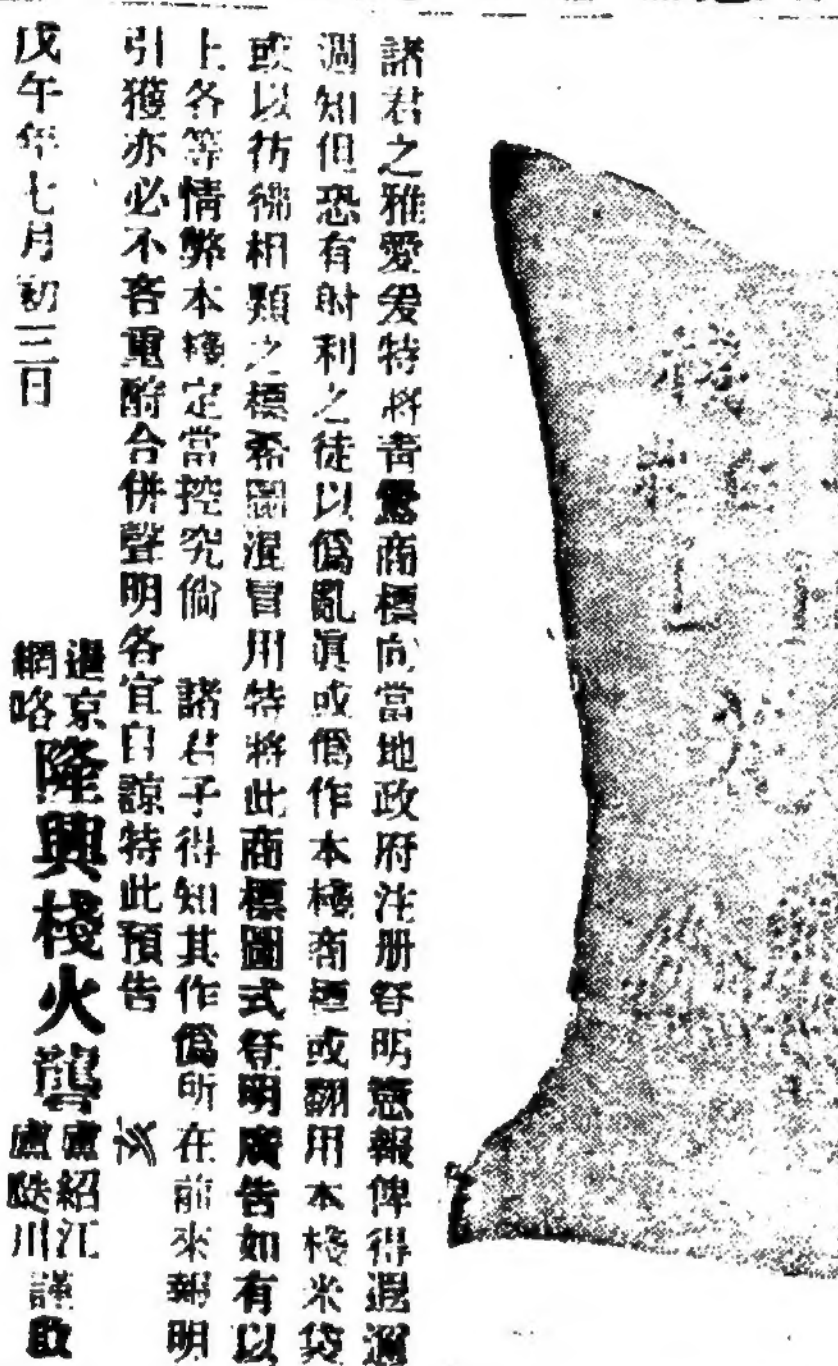 諸君之雅愛爰特將青鸞商標向當地政府注册登明憲報俾得遐邇
週知但恐有射利之徒以僞亂眞或僞作本棧商標或翻用本棧米袋
或以彷彿相類之標希圖混冒用特將此商標圖式登明廣告如有以
上各等情弊本棧定當控究倘 諸君子得知其作僞所在前來報明
引獲亦必不吝重酧合併聲明各宜自諒特此預告
戊午年七月初三日
暹京
網咯
隆興棧火礱
盧紹江
盧 川
謹啟